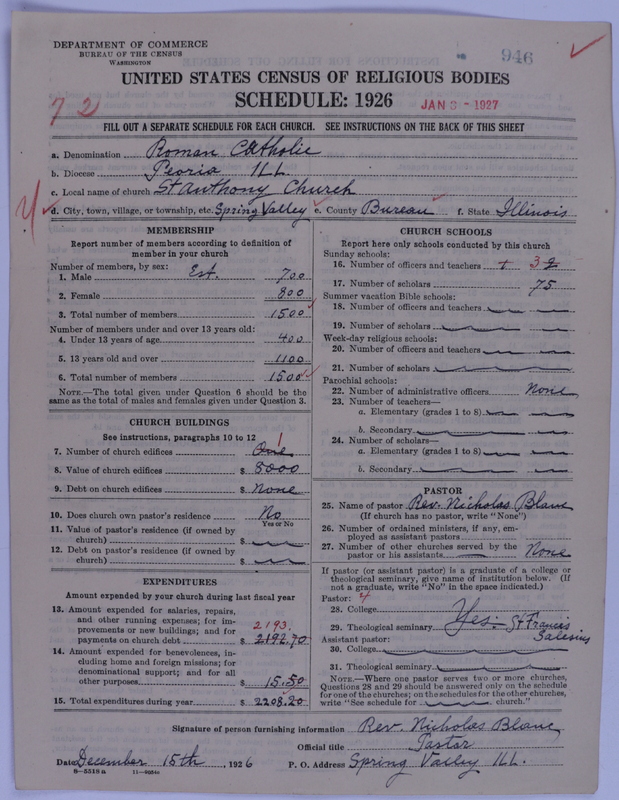 DEPARTMENT OF COMMERCE
BUREAU OF THE CENSUS
WASHINGTON
946
UNITED STATES CENSUS OF RELIGIOUS BODIES
72
SCHEDULE: 1926
JAN 3 - 1927
FILL OUT A SEPARATE SCHEDULE FOR EACH CHURCH. SEE INSTRUCTIONS ON THE BACK OF THIS SHEET
a. Denomination Roman Catholic
b. Diocese Peoria ILL.
c. Local name of church St Anthony Church
d. City, town, village, or township, etc. Spring Valley e. County Bureau f. State Illinois
MEMBERSHIP
Report number of members according to definition of
member in your church
Number of members, by sex: Est.
1. Male 700
2. Female 800
3. Total number of members 1500
Number of members under and over 13 years old:
4. Under 13 years of age 400
5. 13 years old and over 1100
6. Total number of members 1500
NOTE.—The total given under Question 6 should be
the same as the total of males and females given under Question 3.
CHURCH BUILDINGS
See instructions, paragraphs 10 to 12
7. Number of church edifices One 1
8. Value of church edifices $ 8000
9. Debt on church edifices $ None
10. Does church own pastor's residence No
Yes or No
11. Value of pastor's residence (if owned by
church) $
12. Debt on pastor's residence (if owned by
church) $
EXPENDITURES
Amount expended by your church during last fiscal year
13. Amount expended for salaries, repairs,
and other running expenses; for im-
provements or new buildings; and for
payments on church debt $ 2192.70
2193.
14. Amount expended for benevolences, in-
cluding home and foreign missions; for
denominational support; and for all
other purposes $ 15.50
15. Total expenditures during year $ 2208.20
CHURCH SCHOOLS
Report here only schools conducted by this church
Sunday schools:
16. Number of officers and teachers 3
17. Number of scholars 75
Summer vacation Bible schools:
18. Number of officers and teachers
19. Number of scholars
Week-day religious schools:
20. Number of officers and teachers
21. Number of scholars
Parochial schools:
22. Number of administrative officers None
23. Number of teachers—
a. Elementary (grades 1 to 8)
b. Secondary
24. Number of scholars—
a. Elementary (grades 1 to 8)
b. Secondary
PASTOR
25. Name of pastor Rev. Nicholas Blanc
(If church has no pastor, write "None")
26. Number of ordained ministers, if any, em-
ployed as assistant pastors
27. Number of other churches served by the
pastor or his assistants None
If pastor (or assistant pastor) is a graduate of a college or
theological seminary, give name of institution below. (If
not a graduate, write "No" in the space indicated.)
Pastor: 4
28. College
29. Theological seminary Yes - St Francis
Salesius
Assistant pastor:
30. College
31. Theological seminary
NOTE.—Where one pastor serves two or more churches,
Questions 28 and 29 should be answered only on the schedule
for one of the churches; on the schedules for the other churches,
write "See schedule for church."
Signature of person furnishing information Rev. Nicholas Blanc
Official title Pastor
Date December 15th, 1926 P. O. Address Spring Valley ILL.
8-5518 a